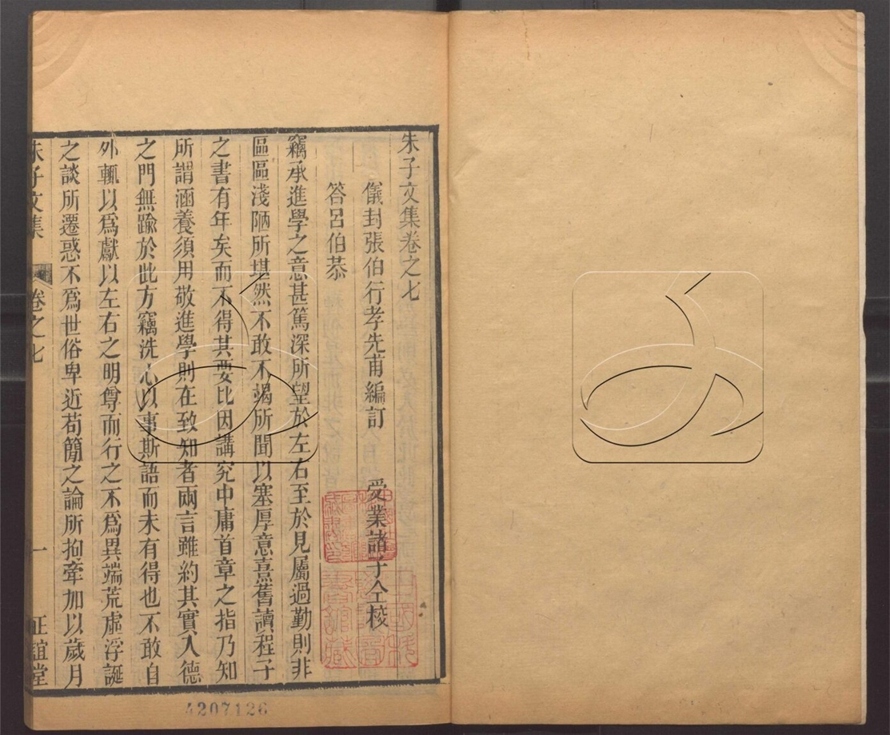 朱子文集卷之七
儀封張伯行孝先甫編訂　受業諸子仝校
答呂伯恭
竊承進學之意甚篤深所望於左右至於見屬過勤則非
區區淺陋所堪然不敢不竭所聞以塞厚意熹舊讀程子
之書有年矣而不得其要比因講究中庸首章之指乃知
所謂涵養須用敬進學則在致知者兩言雖約其實入德
之門無踰於此方竊洗心以事斯語而未有得也不敢自
外輒以爲獻以左右之明尊而行之不爲異端荒虛浮誕
之談所遷惑不爲世俗卑近苟簡之論所拘牽加以歲月
朱子文集　卷之七　一　正誼堂
4207126